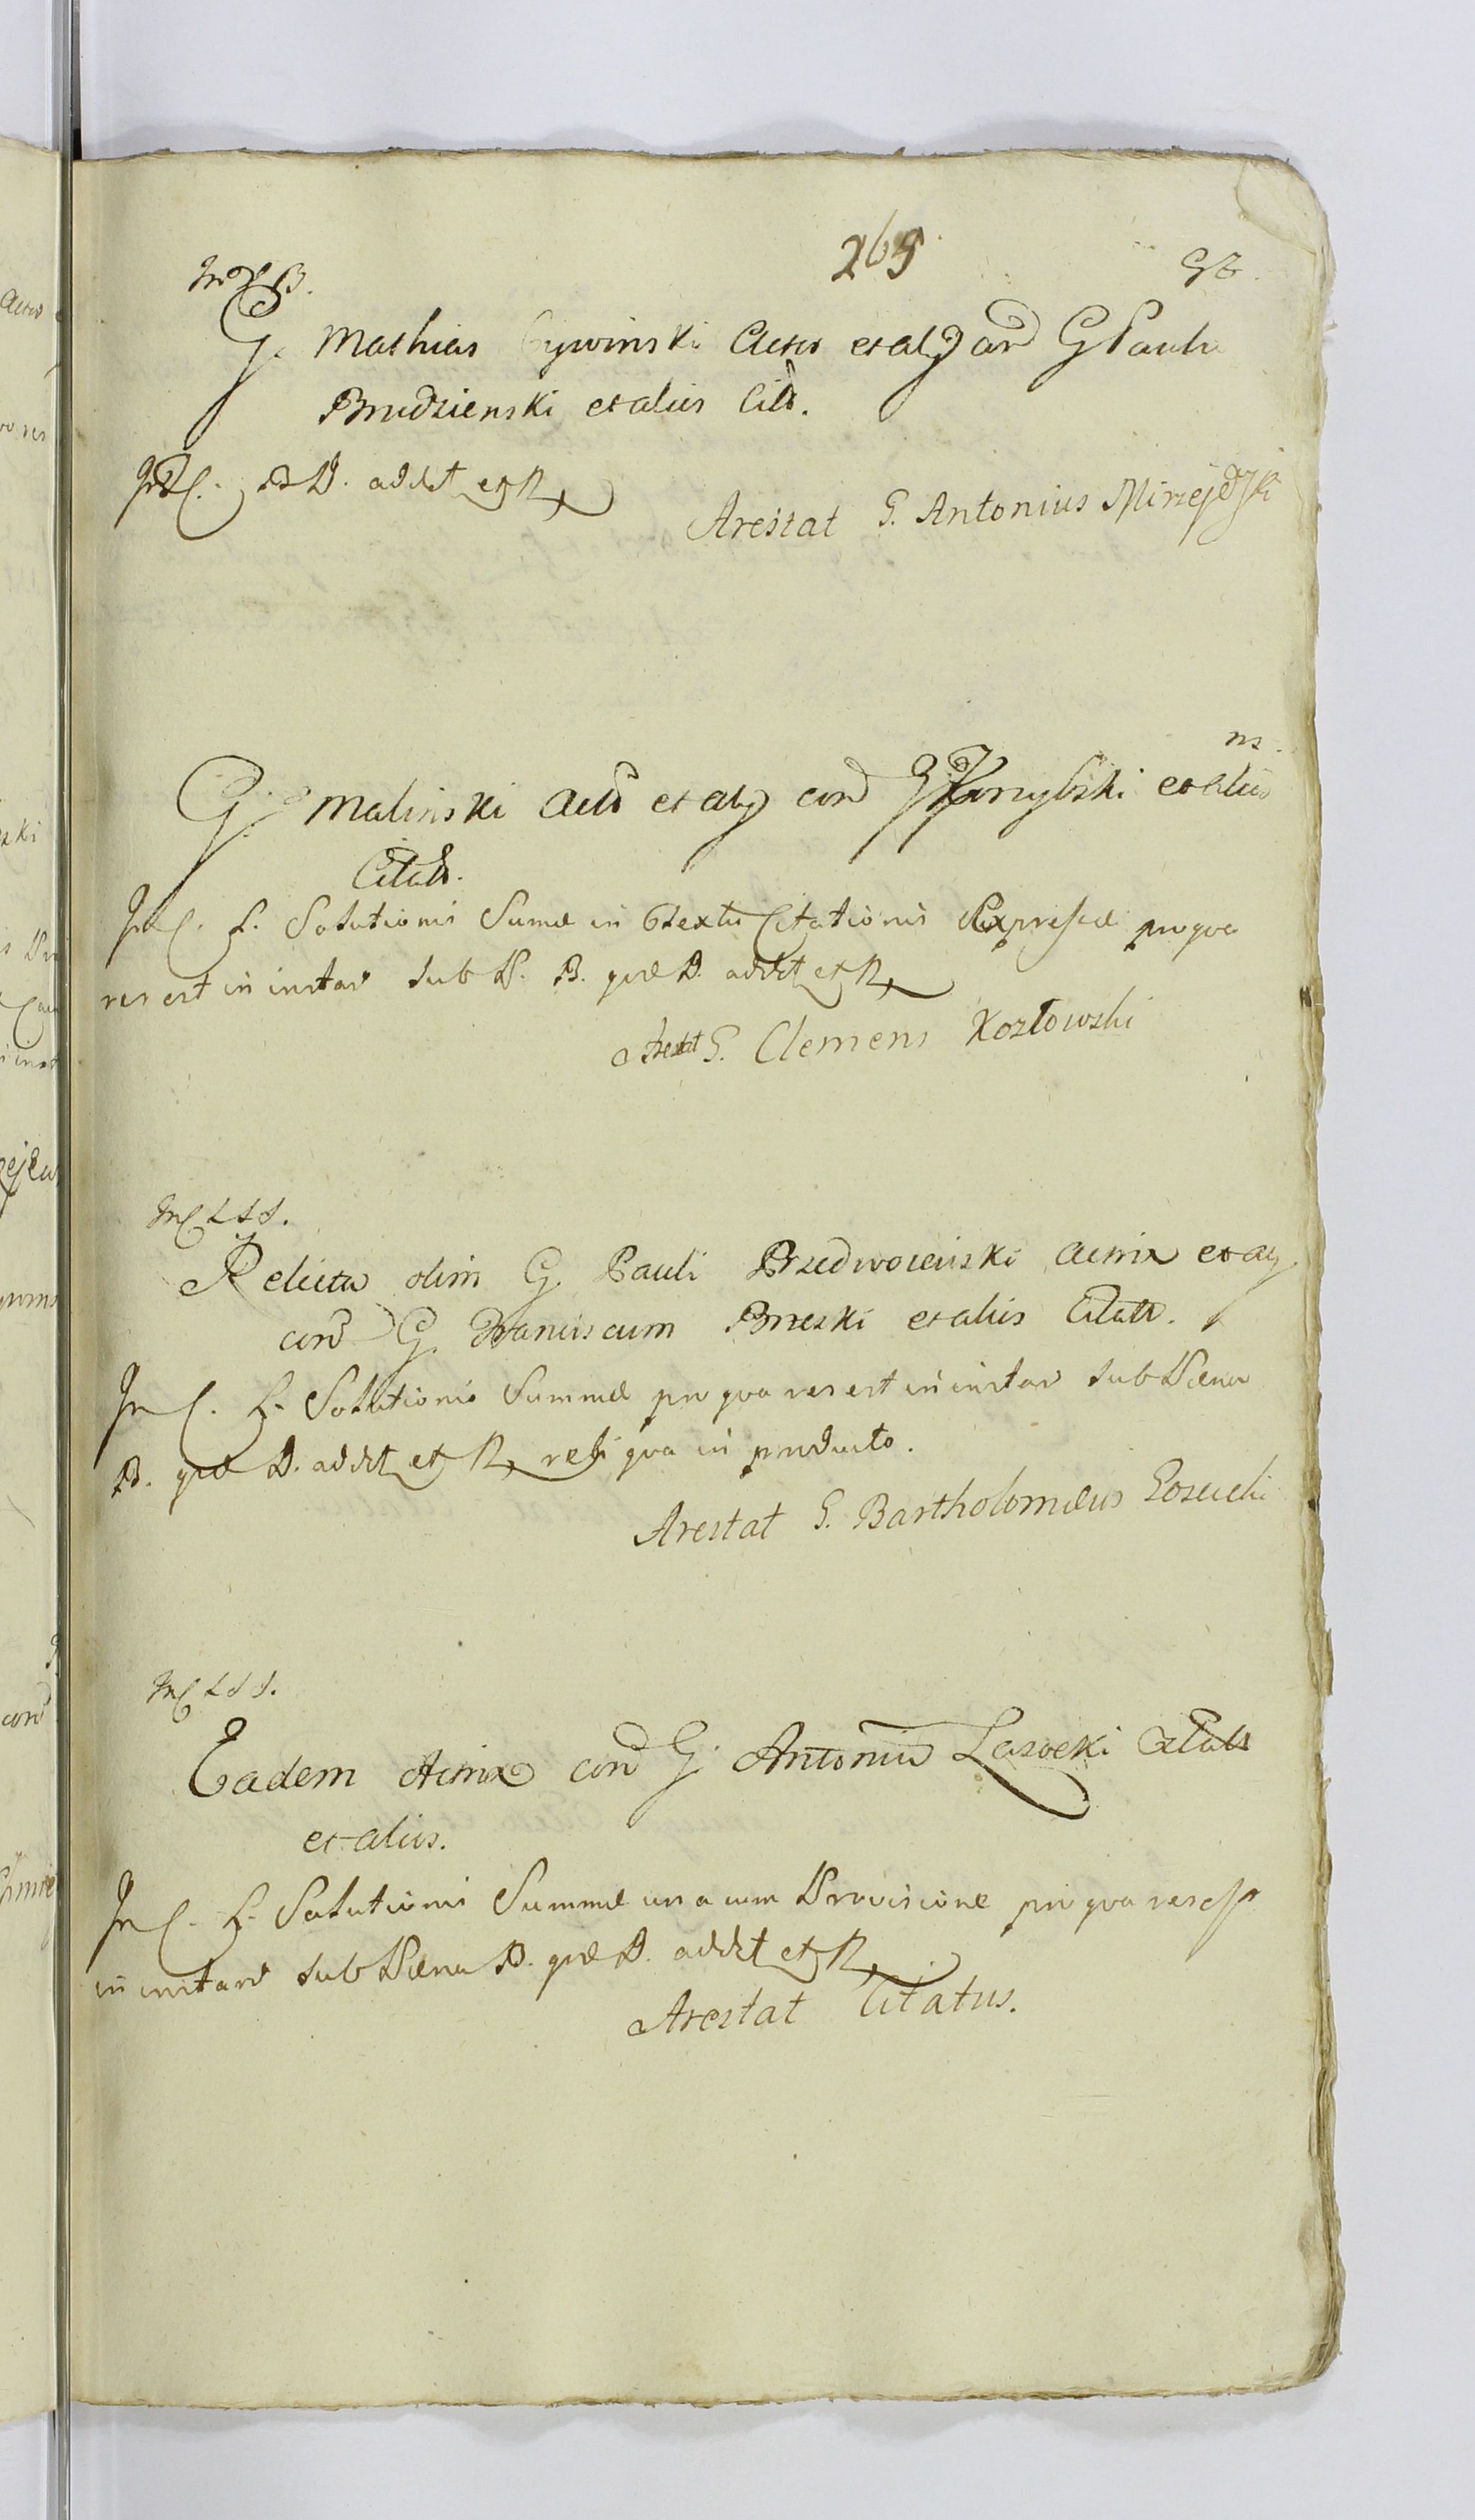 265
G. Mathias Cywinski Actor et alij con G Paulu
Brudzienski et aliis Citt.
P. D. addit et R
Arestat G. Antonius Mirzejewski
G. Malinski Act et alij con G et aliis
ns.
Citatt.
In C. L. Solutionis Sumæ in Contextu Citationis Expressæ pro qua
res est in instan sub P. B. quæ D. addit et R
Arestat G. Clemens Kozłowski
Relicta olim G. Pauli Przedwoienski Actrix et alij
con G. Franciscum Brzeski et aliis Citatt.
In C. L. Solutionis Summæ pro qua res est in instan sub Pæna
B. quæ D. addit et R reliqua in producto.
Arestat G. Bartholomæus
Eadem Actrix con G. Antoniu Lasocki Citatt
et aliis.
In C. L. Solutionis Summæ una cum Provisione pro qua res est
in instan sub Pæna B. quæ D. addit et R
Arestat Citatus.